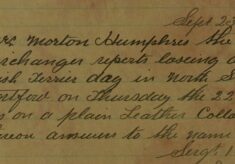 Sept 23
Morton Humphres the
changer reports losing a
ish Terrier day in north S
ortford on Thursday the 22
s on a plain Leather Colla
reon answers to the name
Sergt 1